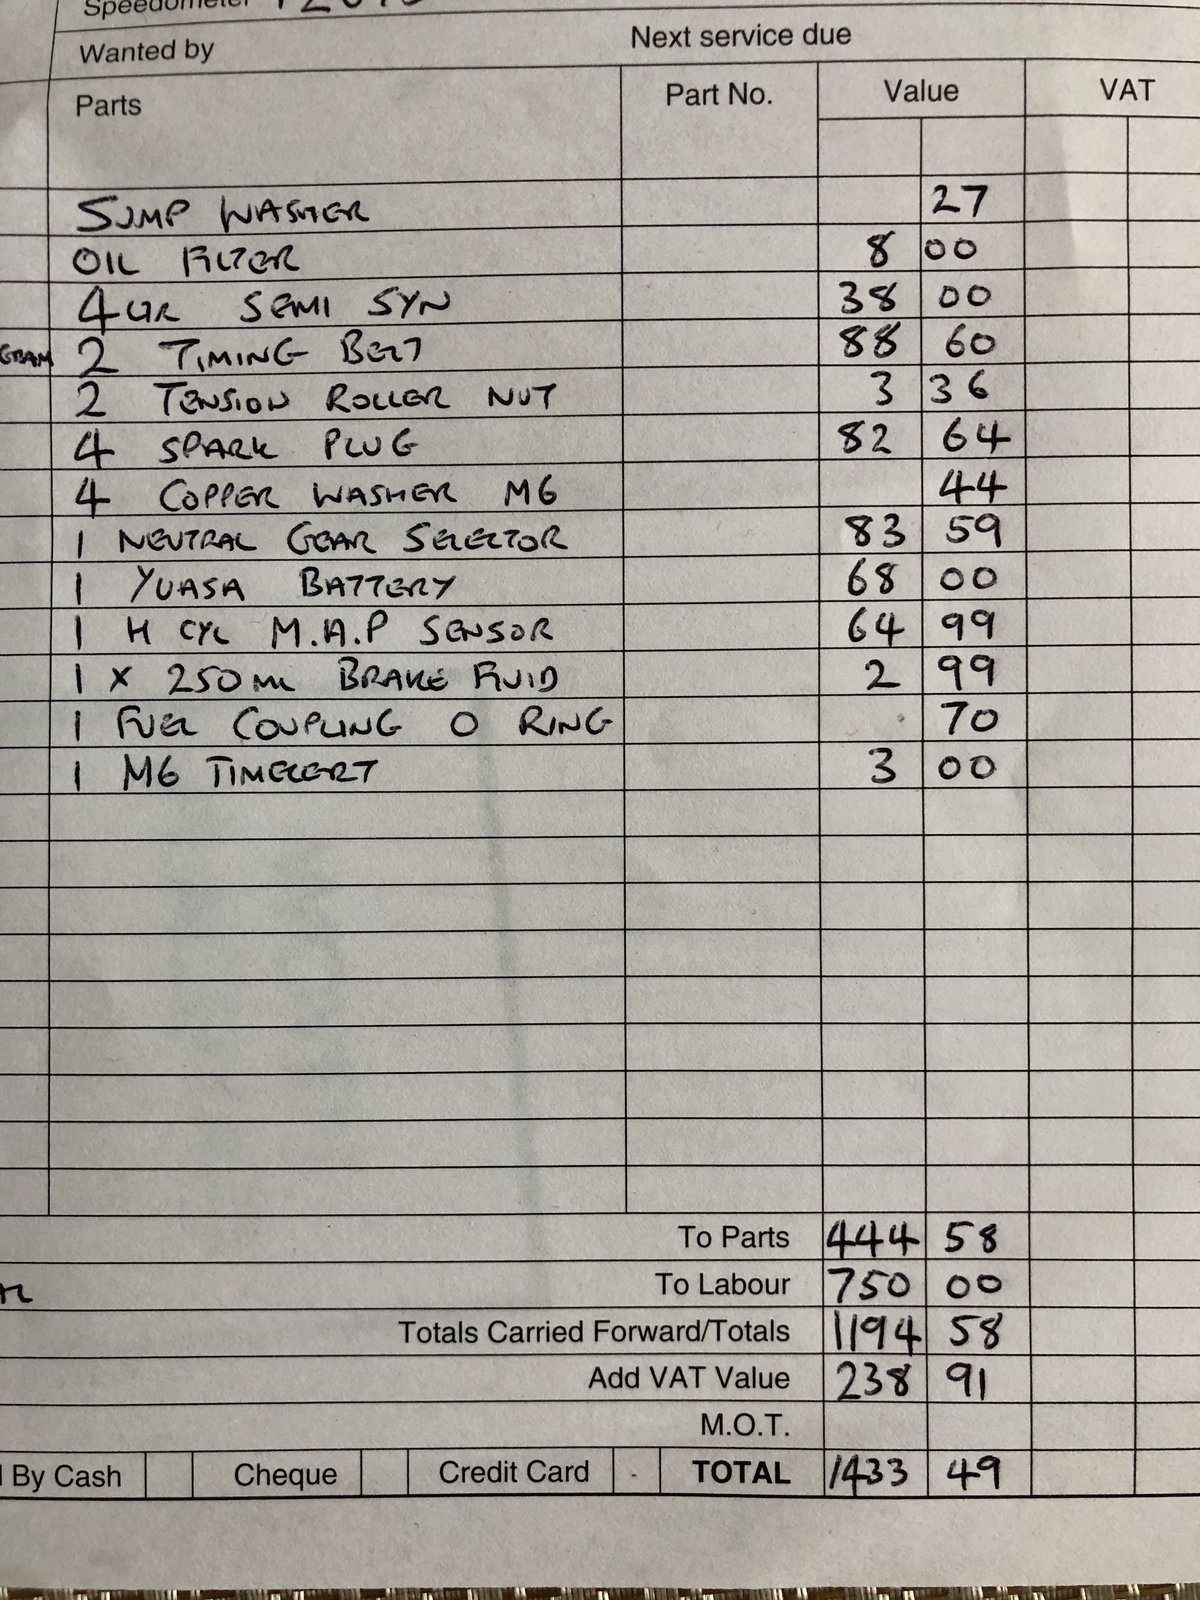 Speedometer
Wanted by Next service due
Parts Part No. Value VAT
SUMP WASHER 27
OIL FILTER 8 00
4 LTR SEMI SYN 38 00
2 TIMING BELT 88 60
2 TENSION ROLLER NUT 3 36
4 SPARK PLUG 82 64
4 COPPER WASHER M6 44
1 NEUTRAL GEAR SELECTOR 83 59
1 YUASA BATTERY 68 00
1 H CYL M.A.P SENSOR 64 99
1 X 250ML BRAKE FLUID 2 99
1 FUEL COUPLING O RING 70
1 M6 TIMECERT 3 00
To Parts 444 58
To Labour 750 00
Totals Carried Forward/Totals 1194 58
Add VAT Value 238 91
M.O.T.
By Cash Cheque Credit Card TOTAL 1433 49